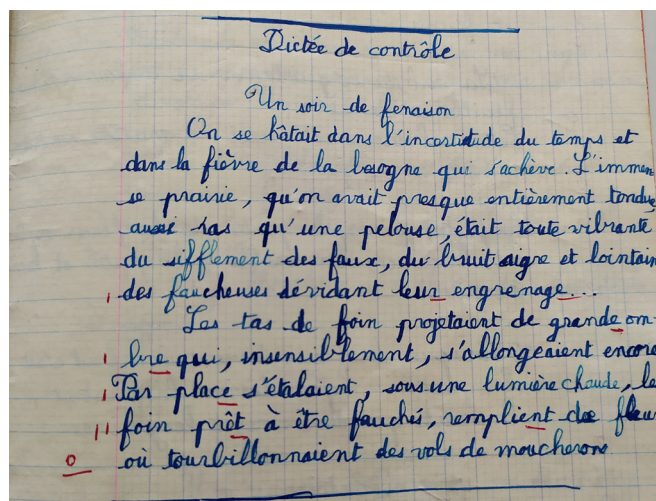 Dictée de contrôle
Un soir de fenaison
On se hâtait dans l'incertitude du temps et
dans la fièvre de la besogne qui s'achève. L'immen
se prairie, qu'on avait presque entièrement tondue
aussi ras qu'une pelouse, était toute vibrante
du sifflement des faux, du bruit aigre et lointain
des faucheuses dévidant leur engrenage...
Les tas de foin projetaient de grande om-
bre qui, insensiblement, s'allongeaient encore
Par place s'étalaient, sous une lumière chaude, le
foin prêt à être fauchés, remplient de fleur
où tourbillonnaient des vols de moucherons
0